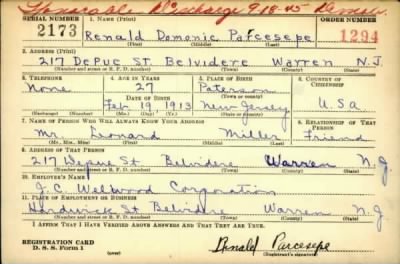 Honorable Discharge 9-18-45
SERIAL NUMBER 1. NAME (Print) ORDER NUMBER
2173 Renald Domonic Parcesepe 1294
(First) (Middle) (Last)
2. ADDRESS (Print)
217 DePue St. Belvidere Warren N.J.
(Number and street or R. F. D. number) (Town) (County) (State)
3. TELEPHONE 4. AGE IN YEARS 5. PLACE OF BIRTH 6. COUNTRY OF CITIZENSHIP
None 27 Paterson
DATE OF BIRTH (Town or county)
Feb 19, 1913 New Jersey U.S.a
(Exchange) (Number) (Mo.) (Day) (Yr.) (State or country)
7. NAME OF PERSON WHO WILL ALWAYS KNOW YOUR ADDRESS 8. RELATIONSHIP OF THAT PERSON
Mr. Leonard Miller Friend
(Mr., Mrs., Miss) (First) (Middle) (Last)
9. ADDRESS OF THAT PERSON
217 Depue St Belvidere Warren N.J
(Number and street or R. F. D. number) (Town) (County) (State)
10. EMPLOYER'S NAME
J.C. Wellwood Corporation
11. PLACE OF EMPLOYMENT OR BUSINESS
Hardwick St Belvidere Warren N.J
(Number and street or R. F. D. number) (Town) (County) (State)
I AFFIRM THAT I HAVE VERIFIED ABOVE ANSWERS AND THAT THEY ARE TRUE.
REGISTRATION CARD
D. S. S. Form 1
Renald Parcesepe
(Registrant's signature)